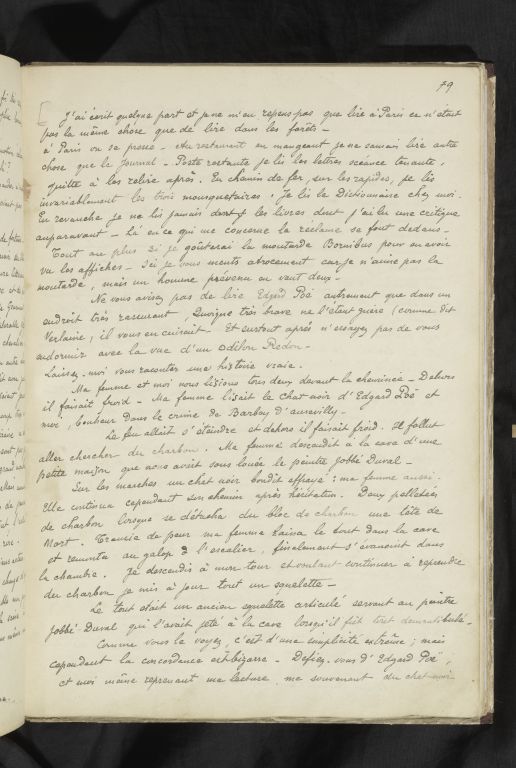 79
J'ai écrit quelque part et je ne m'en repens pas que lire à Paris ce n'était
pas la même chose que de lire dans les forêts —
à Paris on se presse — Au restaurant en mangeant je ne saurais lire autre
chose que le Journal — Poste restante je lis les lettres séance tenante,
quitte à les relire après. En chemin de fer, sur les rapides, je lis
invariablement les trois mousquetaires. Je lis le Dictionnaire chez moi.
En revanche je ne lis jamais les livres dont j'ai lu une critique
auparavant — Là en ce qui me concerne la reclame se fout dedans —
Tout au plus si je goûterai la moutarde Bornibus pour en avoir
vu les affiches — Ici je vous ments atrocement car je n'aime pas la
moutarde, mais un homme prévenu en vaut deux —
Ne vous avisez pas de lire Edgard Poë autrement que dans un
endroit très rassurant, Quoique très brave ne l'étant guère (comme dit
Verlaine) il vous en cuirait. Et surtout après n'essayez pas de vous
endormir avec la vue d'un Odilon Redon —
Laissez-moi vous raconter une histoire vraie.
Ma femme et moi nous lisions tous deux devant la cheminée — Dehors
il faisait froid — Ma femme lisait le Chat noir d'Edgard Poë et
moi, Bonheur dans le crime de Barbey d'aurevilly —
Le feu allait s'éteindre et dehors il faisait froid. Il fallut
aller chercher du charbon. Ma femme descendit à la cave d'une
petite maison que nous avait sous louée le peintre Jobbé Duval —
Sur les marches un chat noir bondit effrayé : ma femme aussi.
Elle continua cependant son chemin après hésitation. Deux pelletées
de charbon lorsque se détacha du bloc de charbon une tête de
Mort. Transie de peur ma femme laissa le tout dans la cave
et remonta au galop l'escalier, finalement s'évanouit dans
la chambre. Je descendis à mon tour et voulant continuer à reprendre
du charbon je mis à jour tout un squelette —
Le tout était un ancien squelette articulé servant au peintre
Jobbé-Duval qui l'avait jeté à la cave lorsqu'il fût tout demantibulé.
Comme vous le voyez, c'est d'une simplicité extrême ; mais
cependant la concordance est bizarre — Défiez-vous d'Edgard Poë,
et moi même reprenant ma lecture, me souvenant du chat-noir